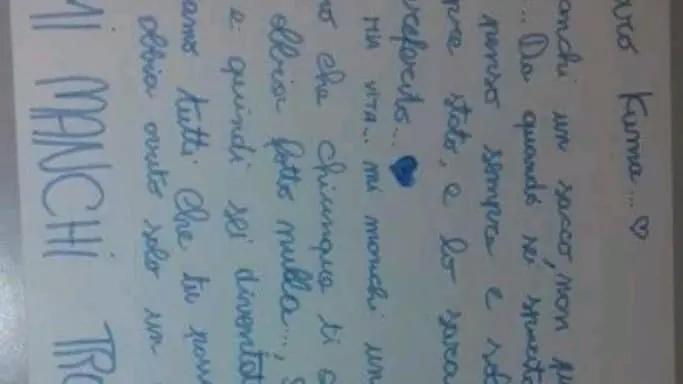 aro Kuma... ♡
anchi un sacco, non p
... Da quando sei
penso sempre e sol
pre stato, e lo sara
referito... ♥
mia vita... mi manchi un
no che chiunque ti
abbia fatto nulla...,
e quindi sei diventat
amo tutti che tu poss
abbia avuto solo un
MI MANCHI TRO